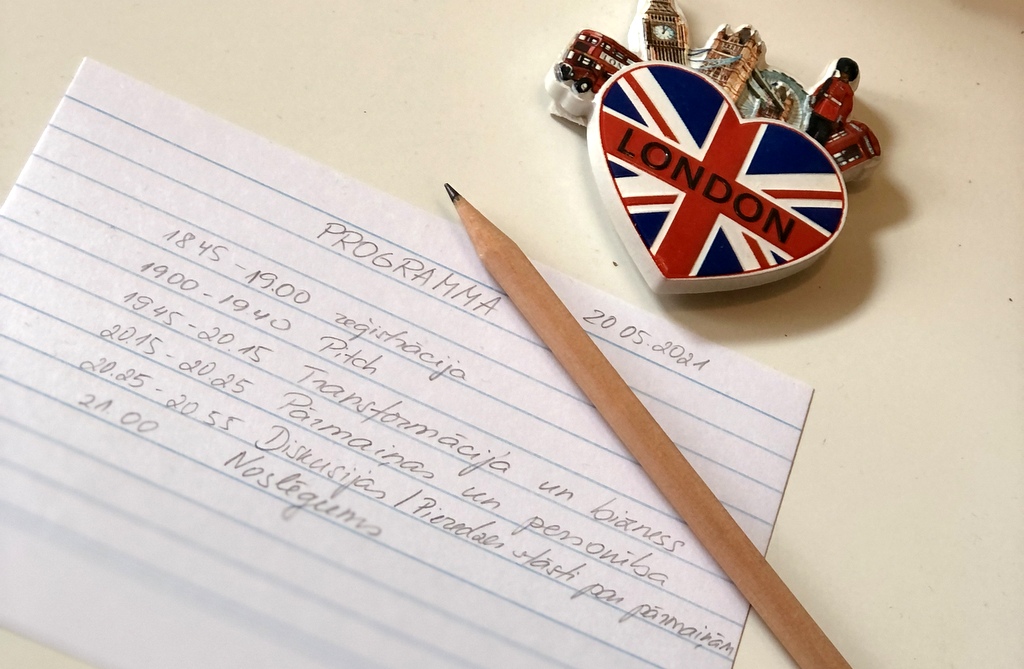 LONDON
PROGRAMMA
20.05.2021
1845 - 19.00 reģistrācija
1900 - 1940 Pitch
1945 - 20.15 Transformācija un bizness
20.15 - 20.25 Pārmaiņas un personība
20.25 - 20 55 Diskusijas / Pieredzes stāsti par pārmaiņām
21.00 Noslēgums